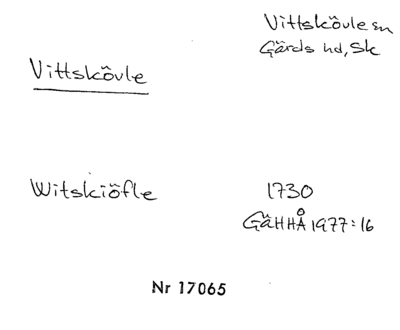 Vittskövle sn
Gärds hd, Sk
Vittskövle
Witskiöfle 1730
GäHHÅ 1977:16
Nr 17065